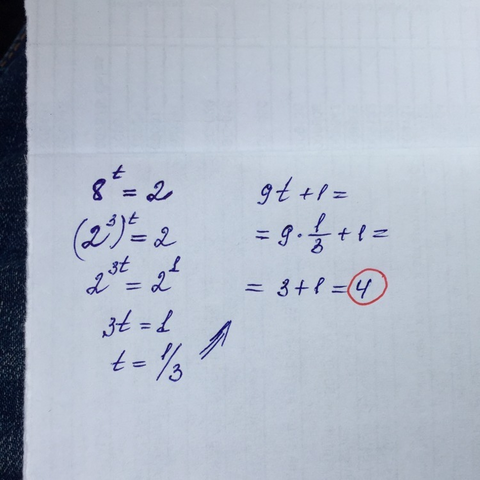 8^t = 2
(2^3)^t = 2
2^{3t} = 2^1
3t = 1
t = 1/3
9t + 1 =
= 9 · \frac{1}{3} + 1 =
= 3 + 1 = 4